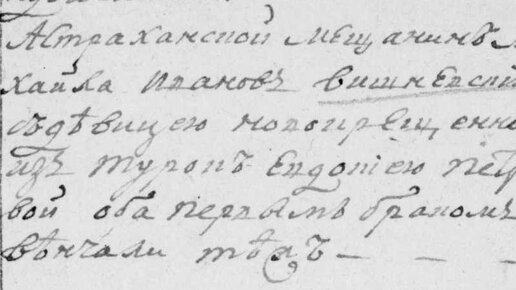 Астраханской мещанинъ М
хайла Ивановъ вишневски
съдѣвицею новокрещенно
изъ туровъ Евдокіею петр
вой оба первымъ бракомъ
вѣнчали тѣхъ — — —